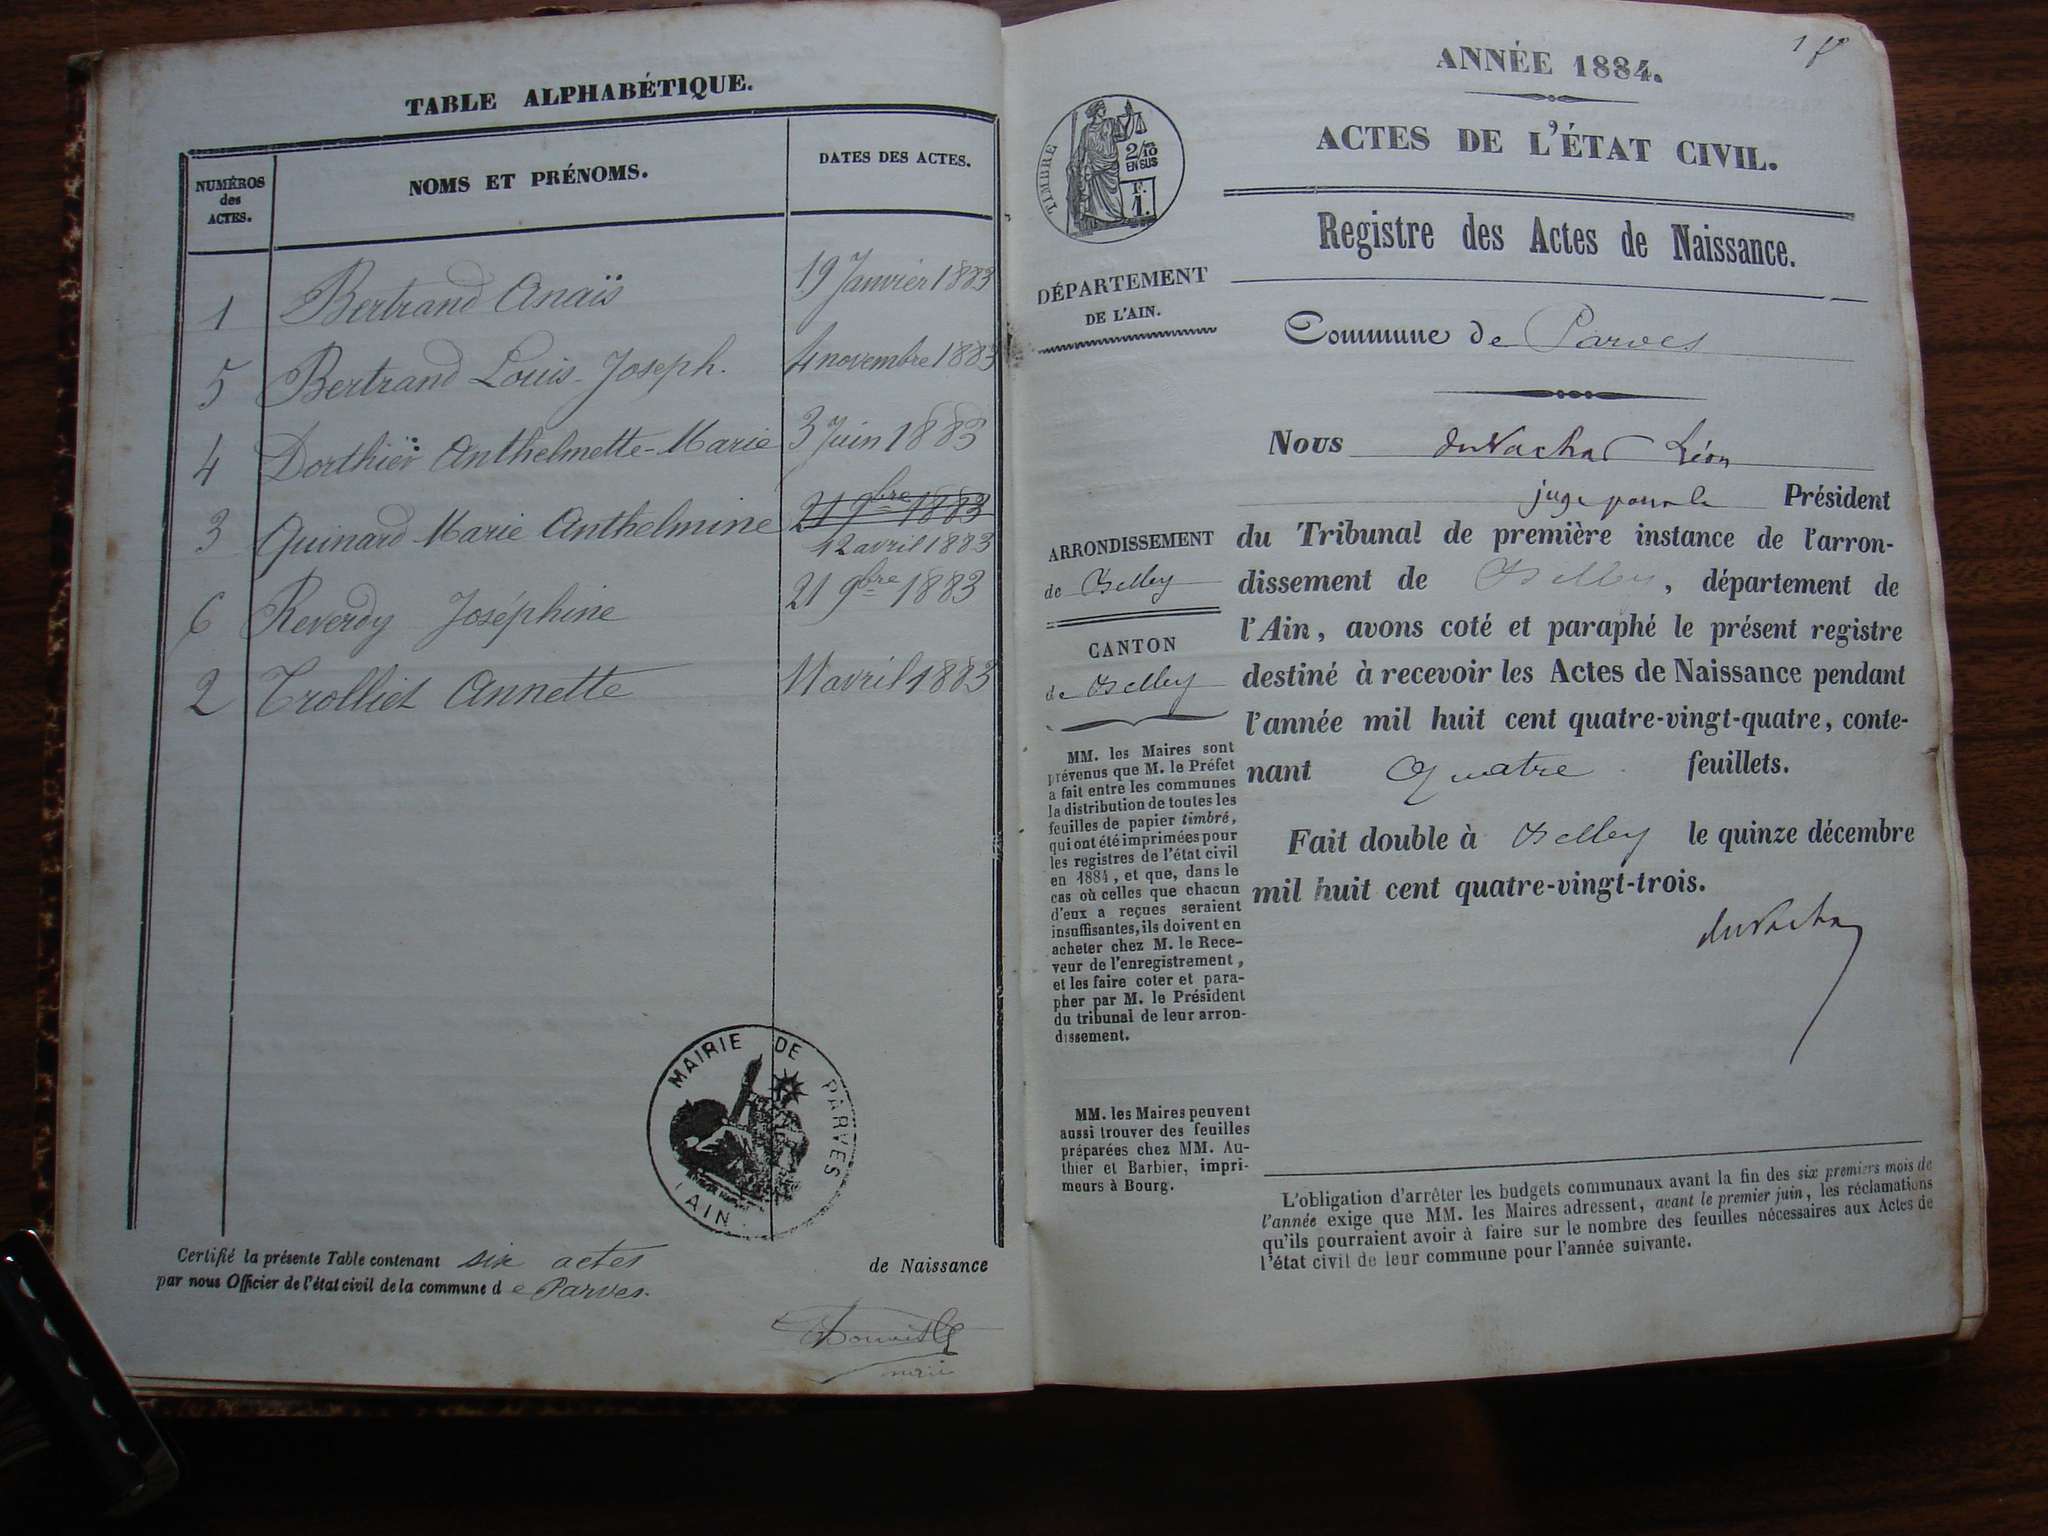 TABLE ALPHABÉTIQUE.
NUMÉROS
des
ACTES.
NOMS ET PRÉNOMS.
DATES DES ACTES.
1 Bertrand Anaïs 19 Janvier 1883
5 Bertrand Louis-Joseph. 4 novembre 1883
4 Dorthier Anthelmette-Marie 3 Juin 1883
3 Guinard Marie Anthelmine 21 9bre 1883
12 avril 1883
6 Reverdy Joséphine 21 9bre 1883
2 Trolliet Annette 11 avril 1883
MAIRIE DE PARVES
AIN
Certifié la présente Table contenant six actes de Naissance
par nous Officier de l'état civil de la commune de Parves.
1 f°
ANNÉE 1884.
ACTES DE L'ÉTAT CIVIL.
TIMBRE
2/10
EN SUS
F.
1.
Registre des Actes de Naissance.
DÉPARTEMENT
DE L'AIN.
Commune de Parves
Nous Duvachat Léon
juge pour le Président
du Tribunal de première instance de l'arron-
dissement de Belley, département de
l'Ain, avons coté et paraphé le présent registre
destiné à recevoir les Actes de Naissance pendant
l'année mil huit cent quatre-vingt-quatre, conte-
nant Quatre feuillets.
Fait double à Belley le quinze décembre
mil huit cent quatre-vingt-trois.
ARRONDISSEMENT
de Belley
CANTON
de Belley
MM. les Maires sont
prévenus que M. le Préfet
a fait entre les communes
la distribution de toutes les
feuilles de papier timbré,
qui ont été imprimées pour
les registres de l'état civil
en 1884, et que, dans le
cas où celles que chacun
d'eux a reçues seraient
insuffisantes, ils doivent en
acheter chez M. le Rece-
veur de l'enregistrement,
et les faire coter et para-
pher par M. le Président
du tribunal de leur arron-
dissement.
MM. les Maires peuvent
aussi trouver des feuilles
préparées chez MM. Au-
thier et Barbier, impri-
meurs à Bourg.
L'obligation d'arrêter les budgets communaux avant la fin des six premiers mois de
l'année exige que MM. les Maires adressent, avant le premier juin, les réclamations
qu'ils pourraient avoir à faire sur le nombre des feuilles nécessaires aux Actes de
l'état civil de leur commune pour l'année suivante.